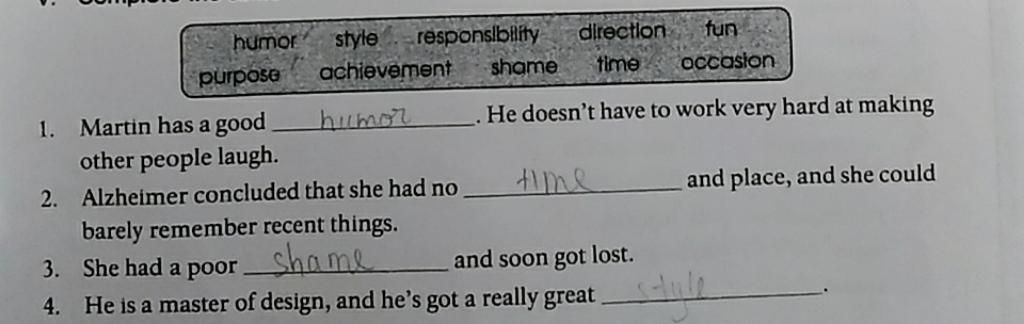 humor style responsibility direction fun
purpose achievement shame time occasion
1. Martin has a good humor. He doesn't have to work very hard at making
other people laugh.
2. Alzheimer concluded that she had no time and place, and she could
barely remember recent things.
3. She had a poor shame and soon got lost.
4. He is a master of design, and he's got a really great style.